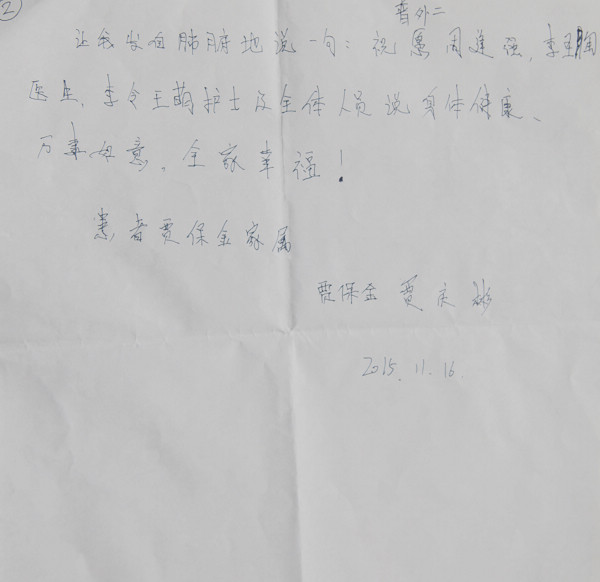 ②
普外二
让我发自肺腑地说一句：祝愿周建强、李
医生、李令王萌护士及全体人员说身体健康、
万事如意，全家幸福！
患者贾保金家属
贾保金 贾庆彬
2015.11.16.